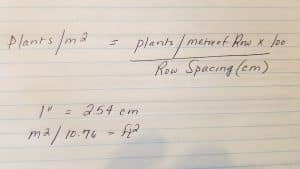 Plants/m2 = plants/metre of Row x 100
Row Spacing (cm)
1" = 2.54 cm
m2/10.76 = ft2